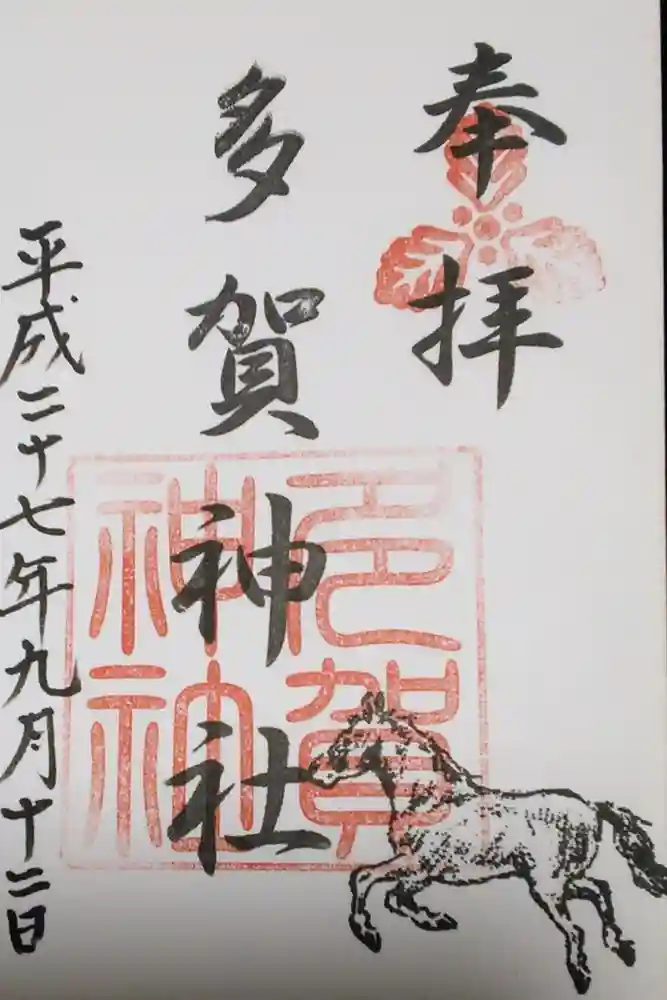 奉拝
多賀神社
多賀神社
平成二十七年九月十二日